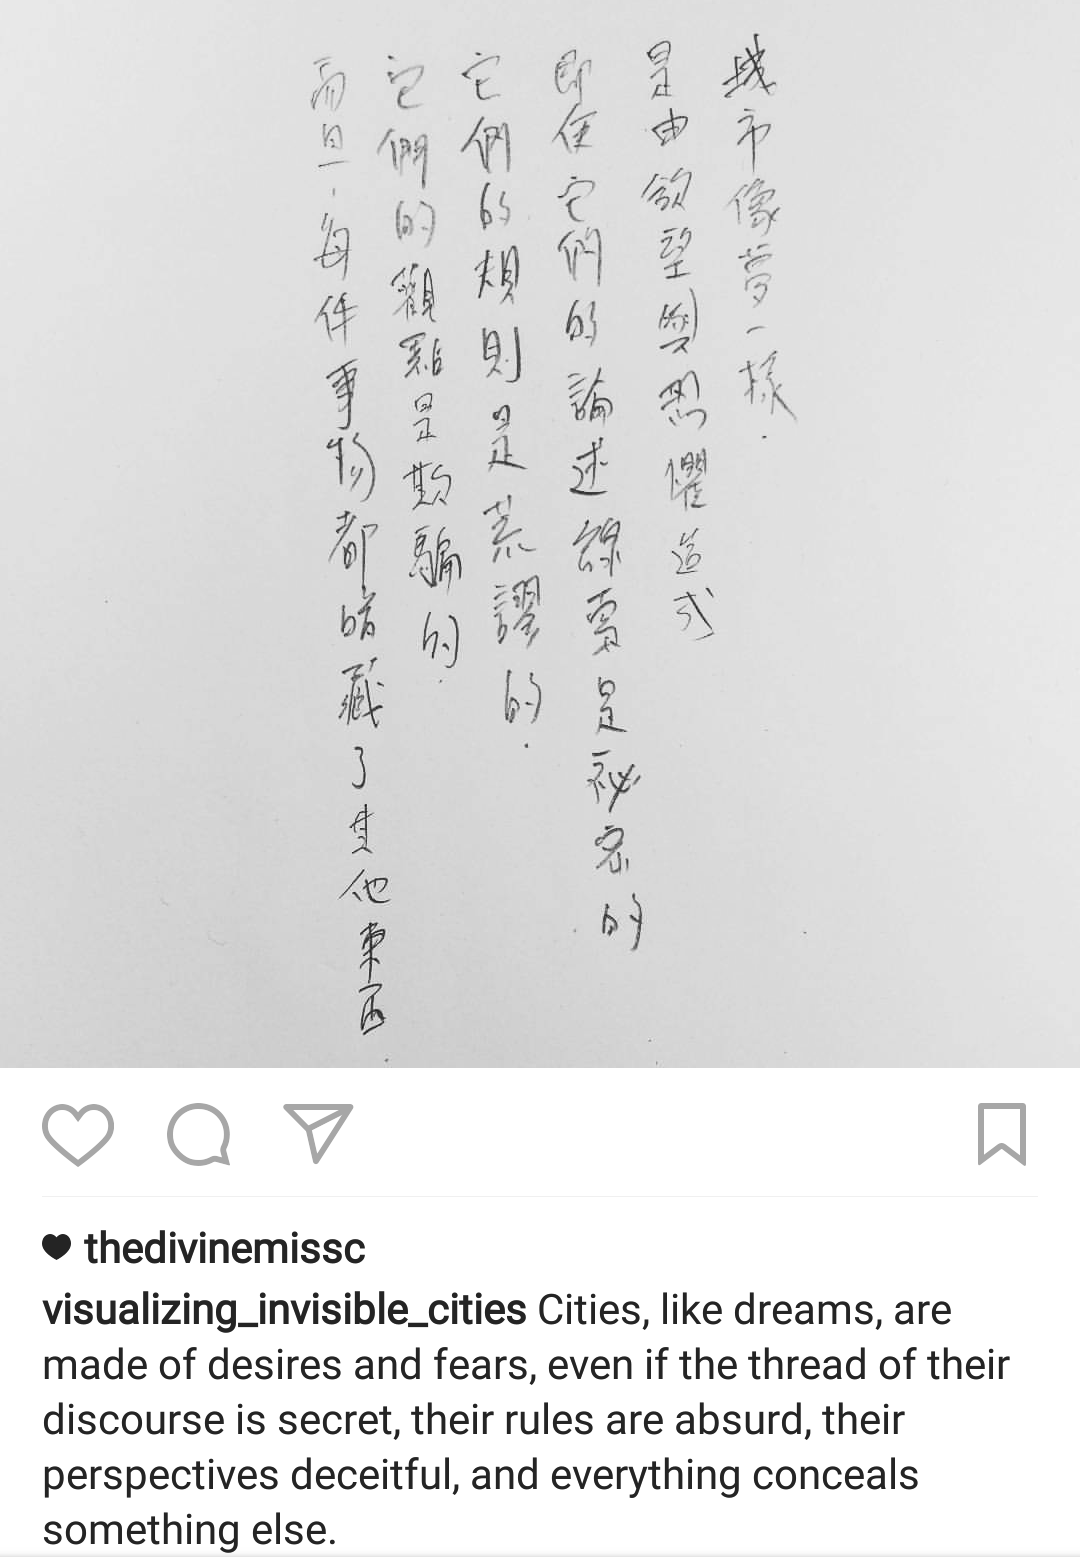 城市像夢一樣.
是由欲望與恐懼造成
即使它們的論述線索是祕密的.
它們的規則是荒謬的.
它們的觀點是欺騙的.
而且,每件事物都暗藏了其他東西.
thedivinemissc
visualizing_invisible_cities Cities, like dreams, are
made of desires and fears, even if the thread of their
discourse is secret, their rules are absurd, their
perspectives deceitful, and everything conceals
something else.